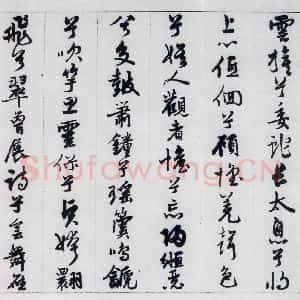 雲旗兮委蛇長太息兮將
上心低佪兮顧懷羌聲色
兮娛人觀者憺兮忘歸緪瑟
兮交鼓蕭鐘兮瑤簴鳴䶵
兮吹竽思靈保兮賢姱翾
飛兮翠曾展詩兮會舞應
Shufawang.CN